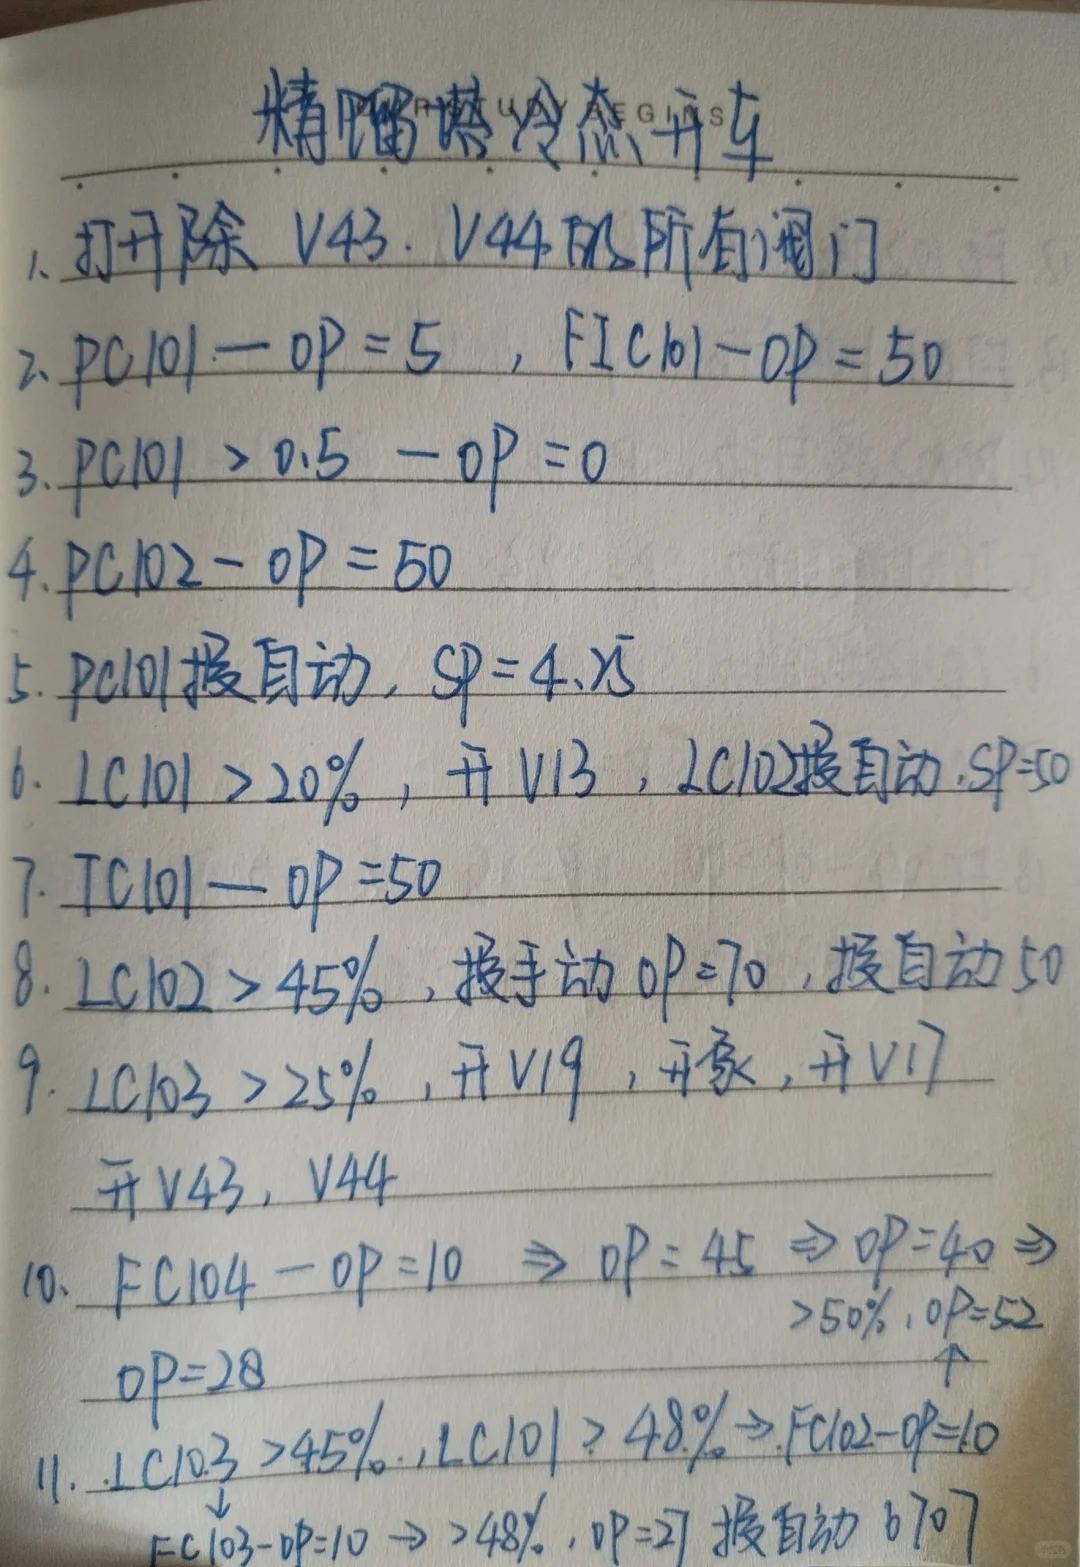 精馏塔冷态开车
1、打开除 V43. V44的所有阀门
2、PC101—OP=5 , FIC101—OP=50
3、PC101 > 0.5 —OP=0
4. PC102—OP=50
5. PC101投自动, SP=4.25
6. LC101>20%, 开V13, LC102投自动.SP=50
7. TC101—OP=50
8. LC102>45%, 投手动OP=70, 投自动50
9. LC103>25%, 开V19, 开泵, 开V17
开V43, V44
10、FC104—OP=10 ⇒ OP=45 ⇒ OP=40 ⇒
>50%, OP=52
OP=28 ↑
11. LC103>45%., LC101>48%→FC102-OP=10
↓
FC103-OP=10 → >48%, OP=27 投自动 6707